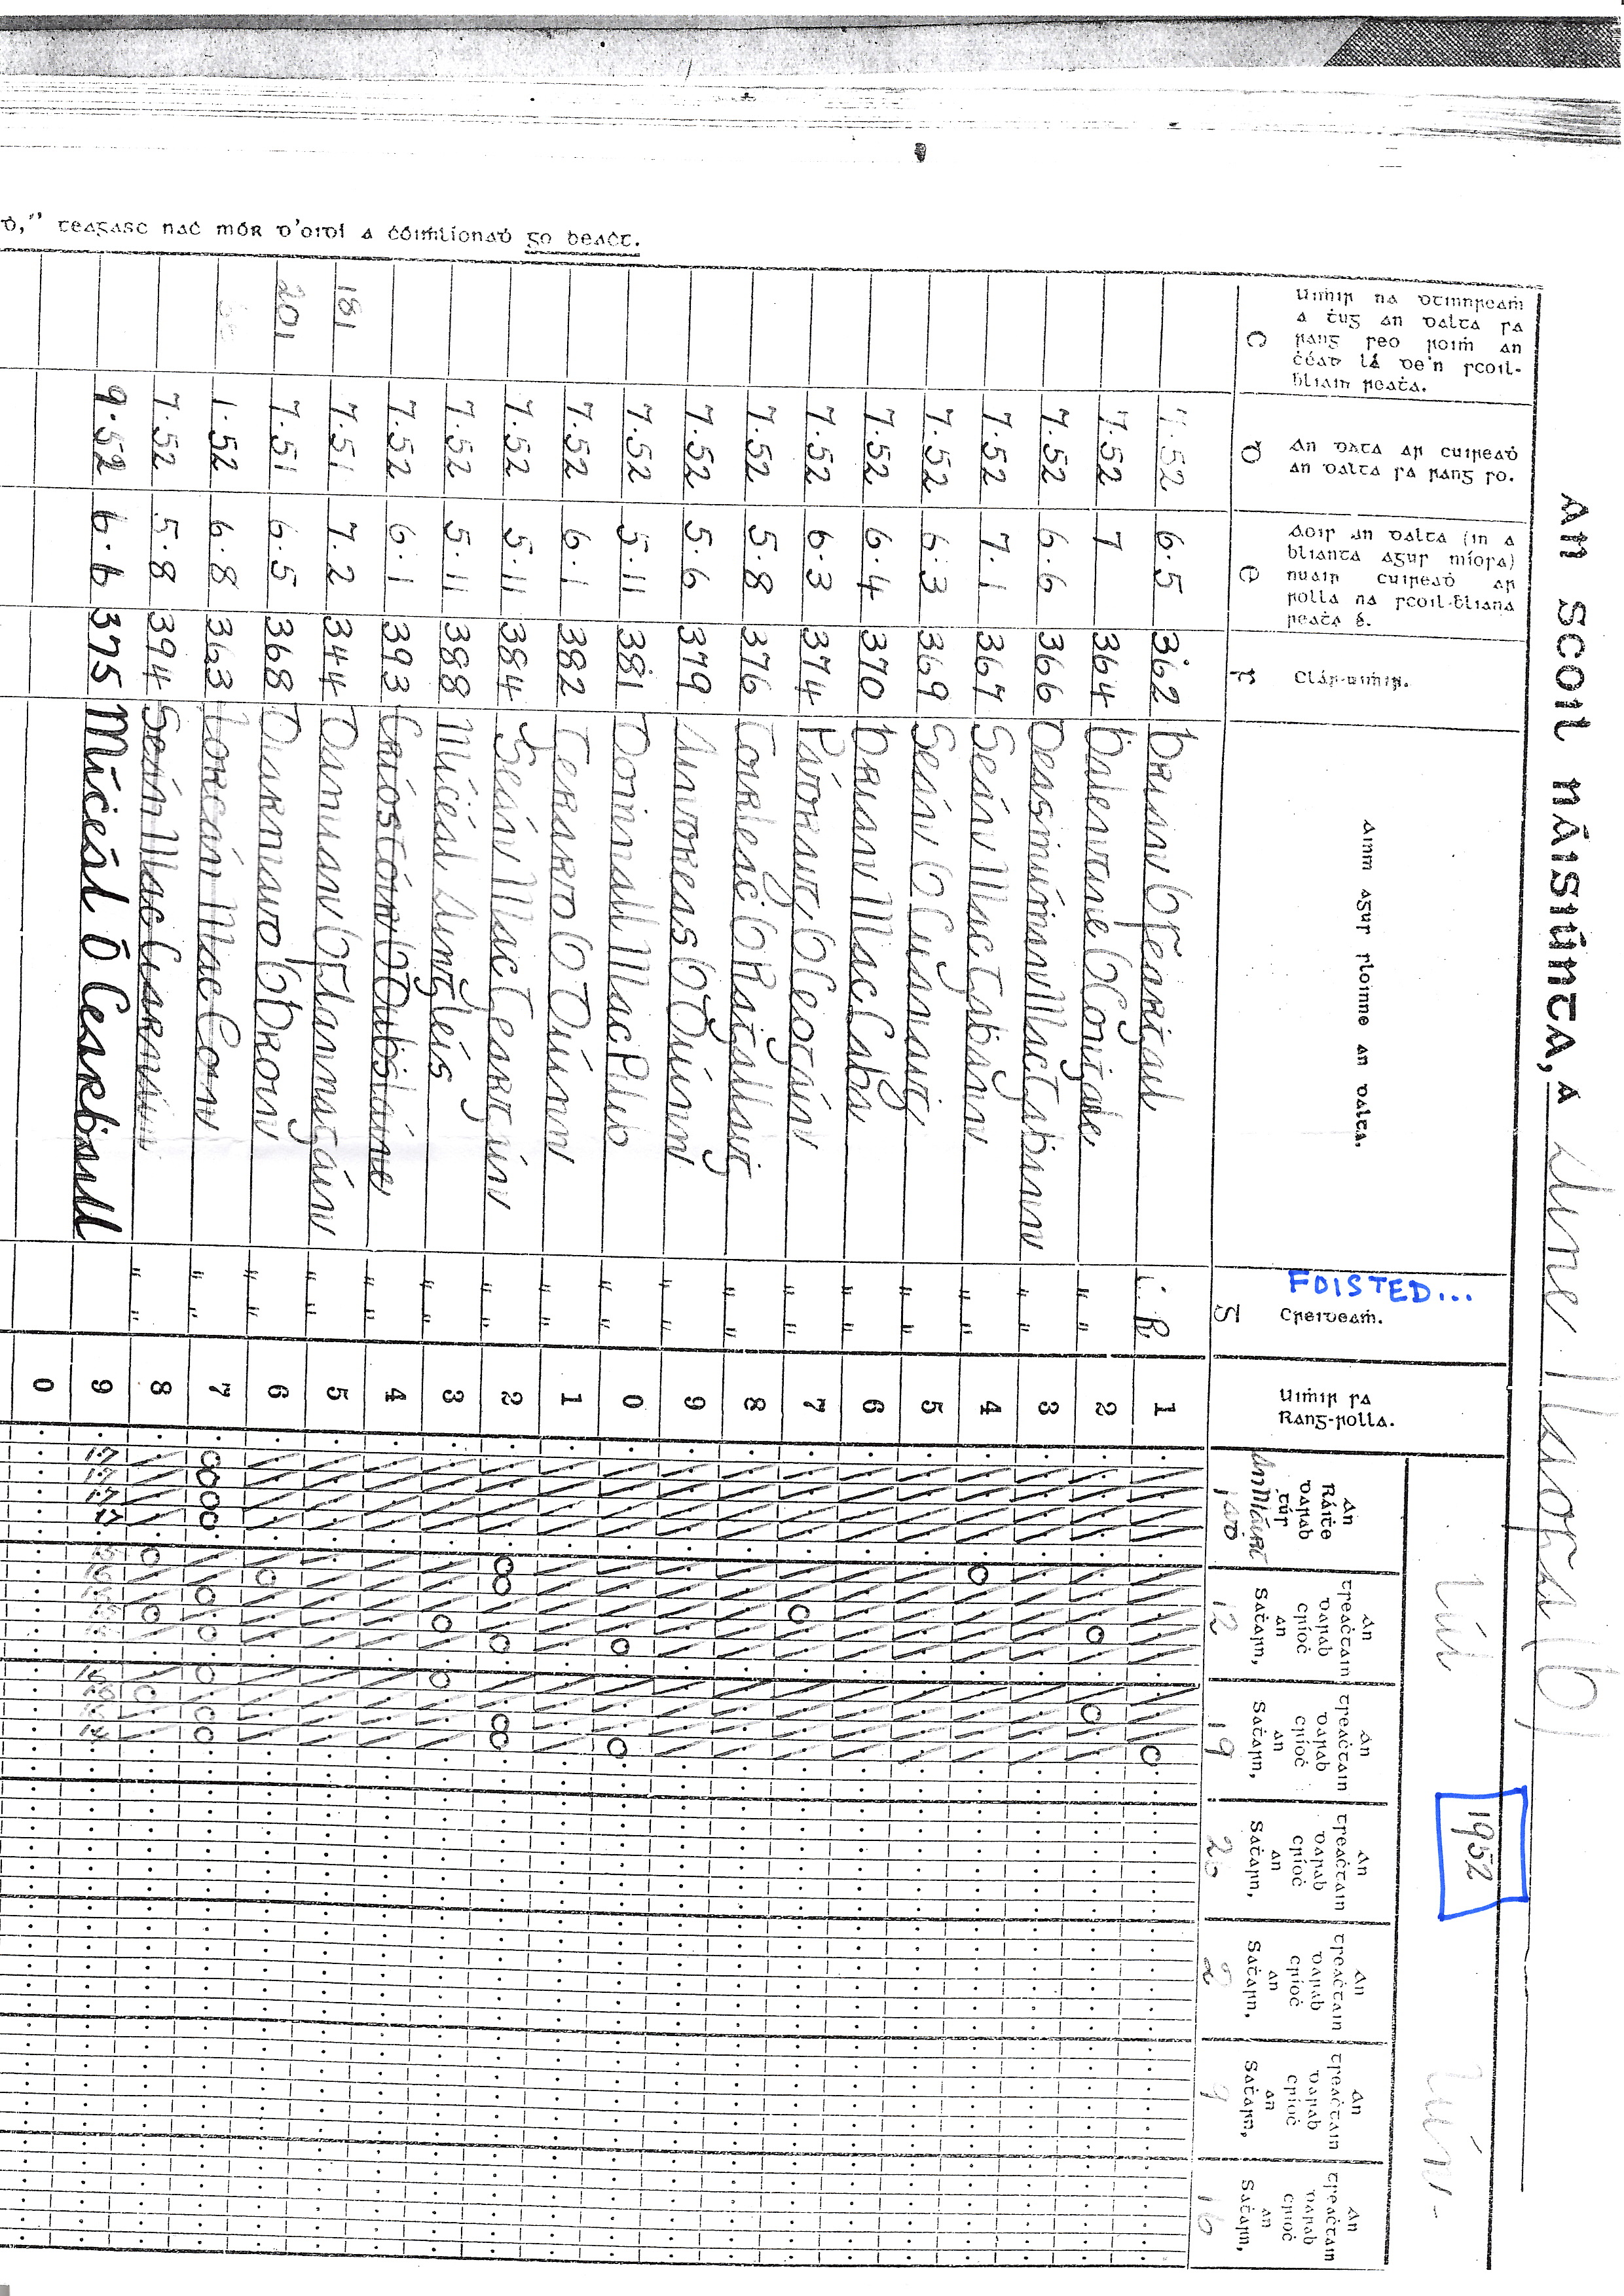 An Scoil Náisiúnta, a Aine Naofa (b)
1952
Iúl
Uimhir na dtinnreamh a thug an dalta sa rang seo roimh an chéad lá de'n scoil-bhliain reatha.
An data ar cuireadh an dalta sa rang so.
Aois an dalta (in a bhlianta agus míosa) nuair cuireadh ar rolla na scoil-bhliana reatha é.
Clár-uimhir.
Ainm agus sloinne an dalta.
FOISTED...
Creideamh.
Uimhir sa Rang-rolla.
An Ráithe darab túr An Máirt 1adh
An tSeachtain darab críoch an Satharn, 12
An tSeachtain darab críoch an Satharn, 19
An tSeachtain darab críoch an Satharn, 26
An tSeachtain darab críoch an Satharn, 2
An tSeachtain darab críoch an Satharn, 9
An tSeachtain darab críoch an Satharn, 16
C D E F G
7.52 6.5 362 Brian Ó Fearghail i. R 1
7.52 7 364 Bhalentine Ó Conghaile " " 2
7.52 6.6 366 Deasmúmhan Mac Gabhann " " 3
7.52 7.1 367 Seán Mac Gabhann " " 4
7.52 6.3 369 Seán Ó Cuanaigh " " 5
7.52 6.4 370 Brian Mac Caba " " 6
7.52 6.3 374 Pádraig Ó Ceogáin " " 7
7.52 5.8 376 Toirleach Ó Raghallaigh " " 8
7.52 5.6 379 Aindreas Ó Duinn " " 9
7.52 5.11 381 Domhnall Mac Pilib " " 0
7.52 6.1 382 Gerard Ó Duinn " " 1
7.52 5.11 384 Seán Mac Geargáin " " 2
7.52 5.11 388 Mícheál Aingléis " " 3
7.52 6.1 393 Críostóir Ó Dubhshláine " " 4
181 7.51 7.2 344 Damian Ó Flannagáin " " 5
201 7.51 6.5 368 Diarmaid Ó Broin " " 6
1.52 6.8 363 Lorcán Mac Coin " " 7
7.52 5.8 394 Seán Mac Ciarnáin " " 8
9.52 6.6 375 Mícheál Ó Cearbhaill 9
0
teagasc nach mór d'oidí a chomhlíonadh go beacht.